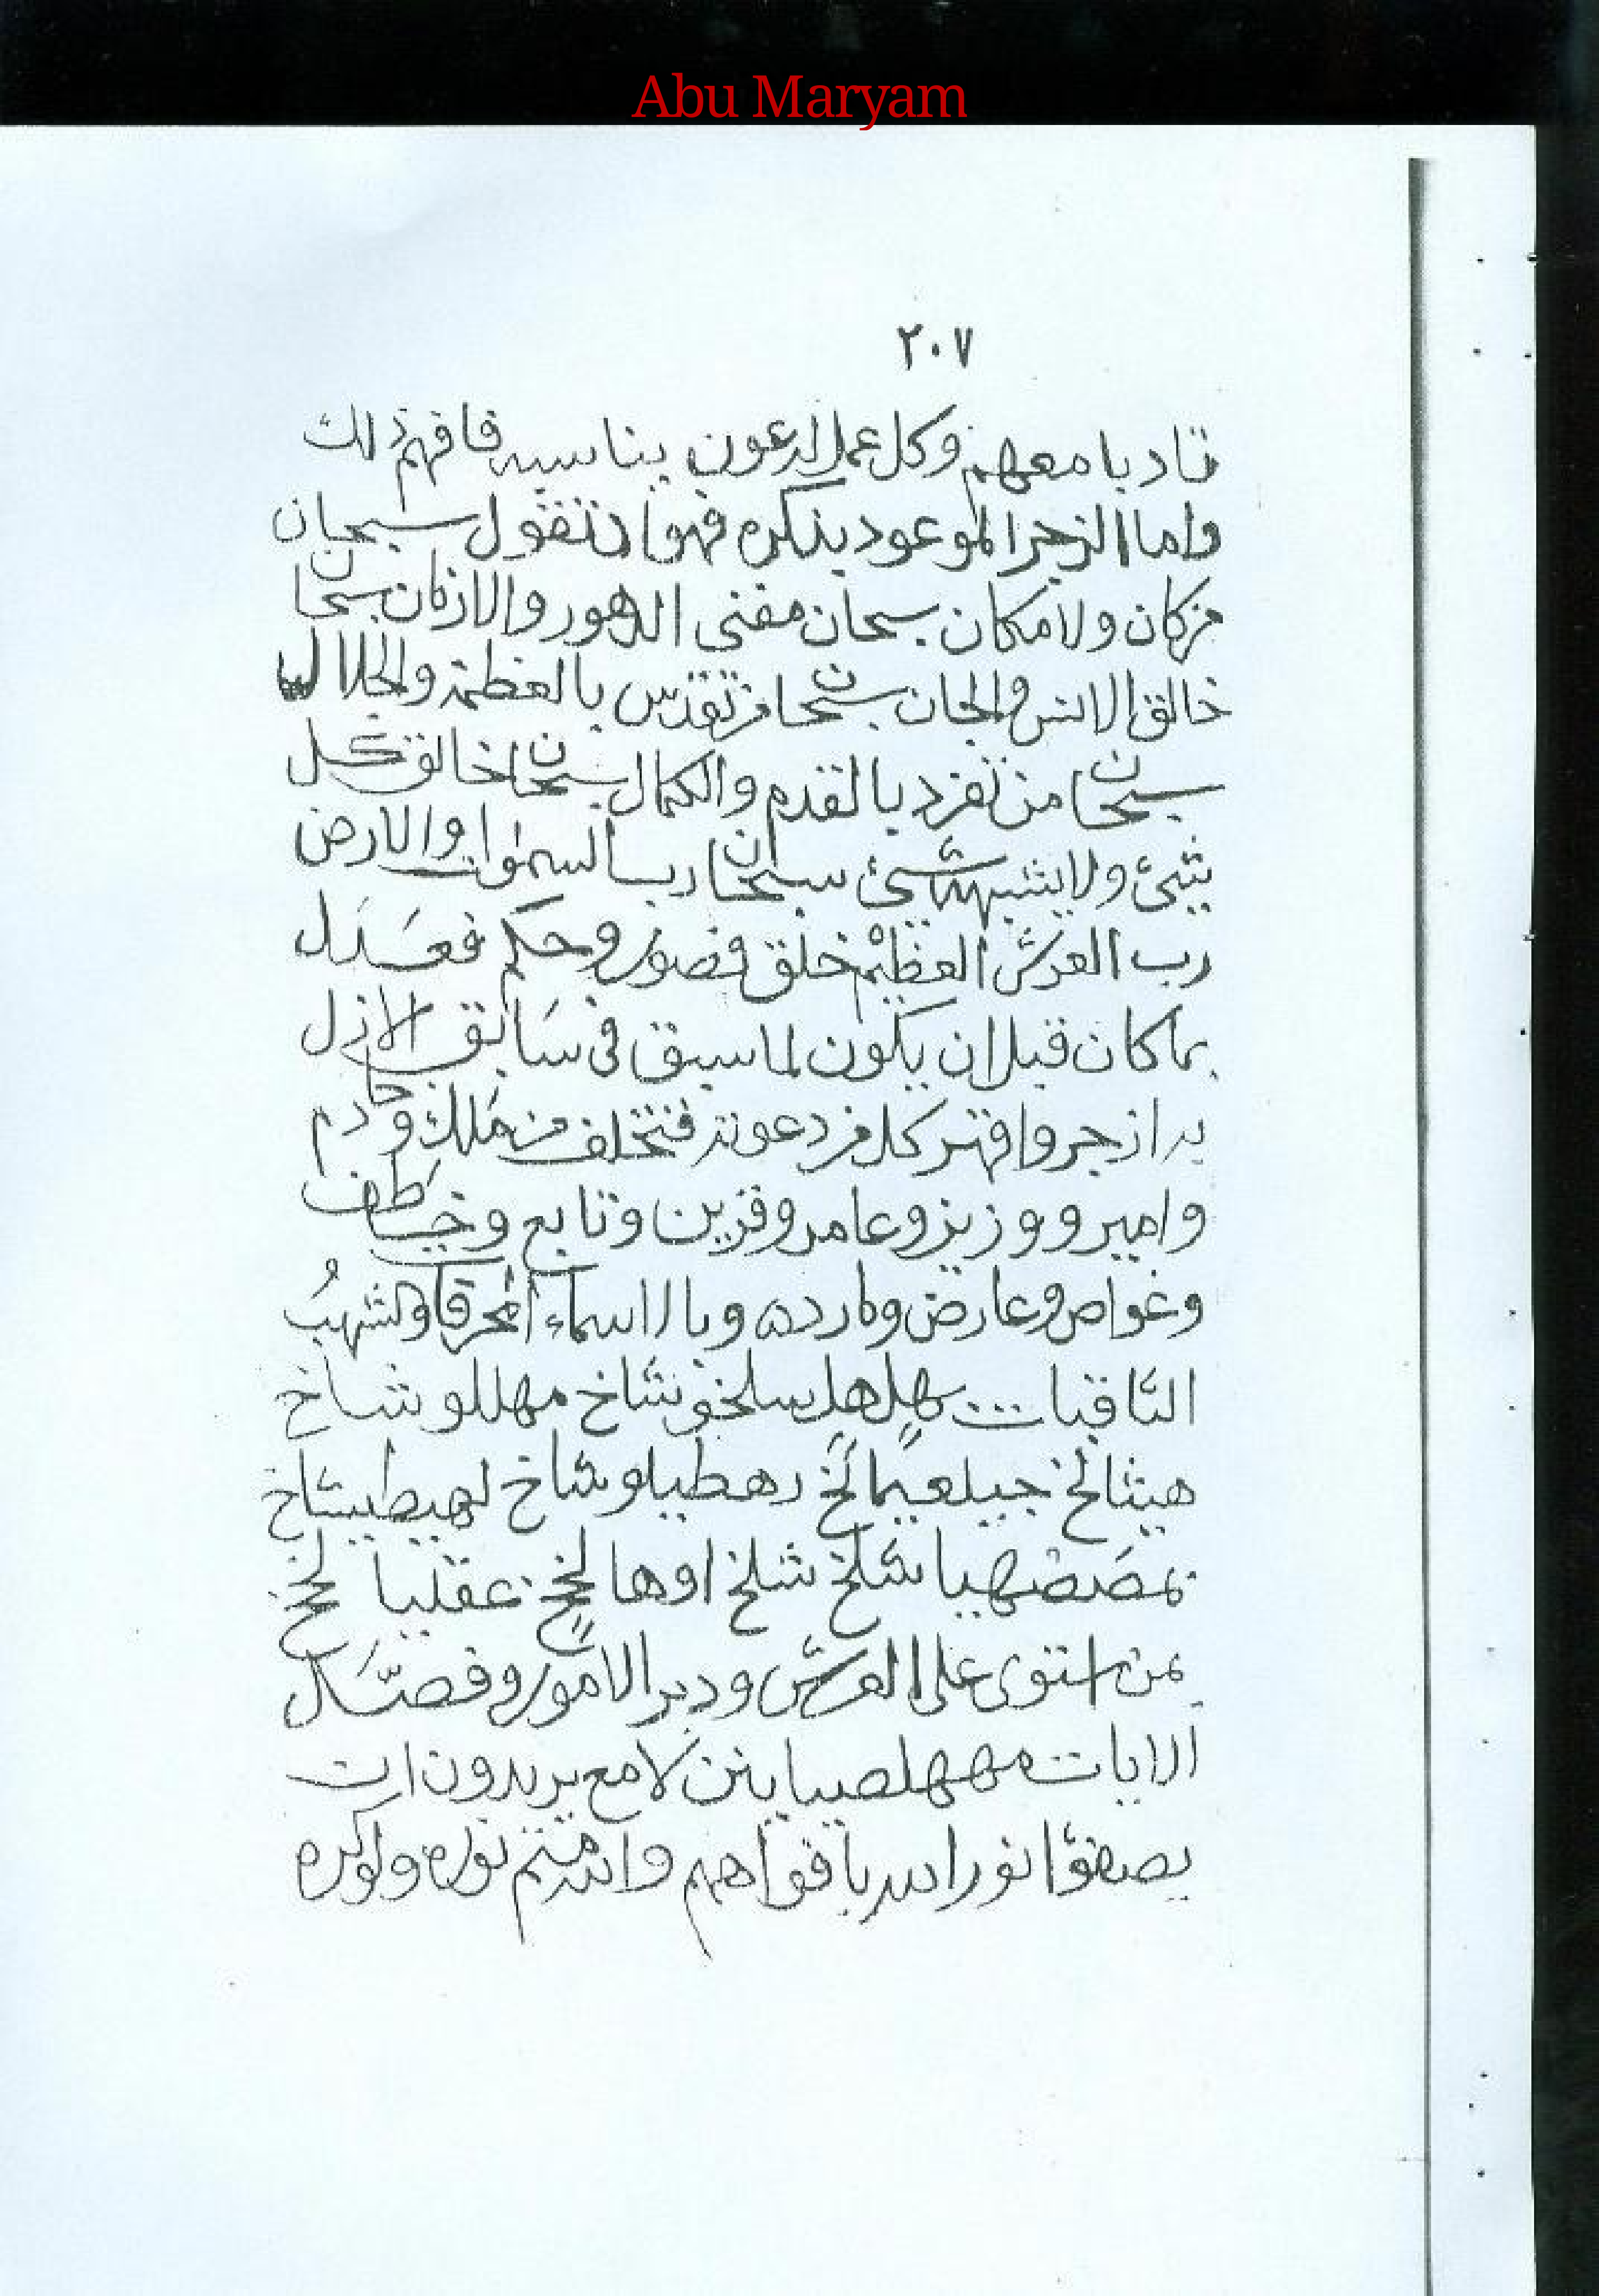 Abu Maryam
٢٠٧
تادبا معهم وكل عمل له عون يناسبه فافهم ذلك
واما الزجر الموعود بذكره فهو ان تقول سبحان
من كان ولا مكان سبحان مفنى الدهور والازمان سبحان
خالق الانس والجان سبحان من تقدس بالعظمة والجلال
سبحان من تفرد بالقدم والكمال سبحان خالق كل
شئ ولا يشبهه شئ سبحان رب السموات والارض
رب العرش العظيم خلق فصور وحكم فعدل
بما كان قبل ان يكون لما سبق فى سابق الازل
به ازجر واقهر كل من دعوته فتخلف من ملك وخادم
وامير ووزير وعامر وقرين وتابع وخاطف
وغواص وعارض ومارده وبالاسماء المحرقا والشهب
الثاقبات بهل هل سلخونشاخ مهللوشاخ
هيثالخ جيلعيمالخ رهطيلوشاخ لهيطيشاخ
شلخ شلخ اوهالخ
بمن استوى على العرش ودبر الامور وفصل
الايات لامع يريدون ان
يصفوا نور الله بافواههم والله متم نوره ولو كره